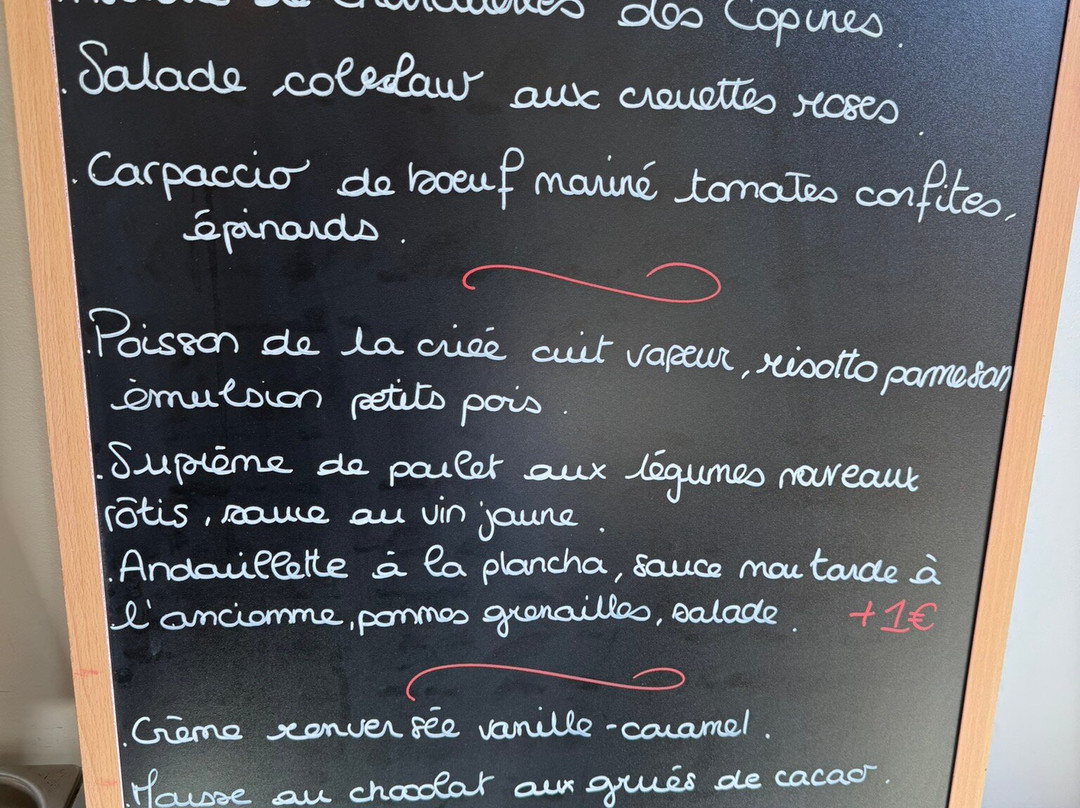 des Copines.
. Salade coleslaw aux crevettes roses.
. Carpaccio de boeuf mariné tomates confites,
épinards.
. Poisson de la criée cuit vapeur, risotto parmesan
émulsion petits pois.
. Suprême de poulet aux légumes nouveaux
rôtis, sauce au vin jaune.
. Andouillette à la plancha, sauce moutarde à
l'ancienne, pommes grenailles, salade. +1€
. Crème renversée vanille-caramel.
. Mousse au chocolat aux grués de cacao.